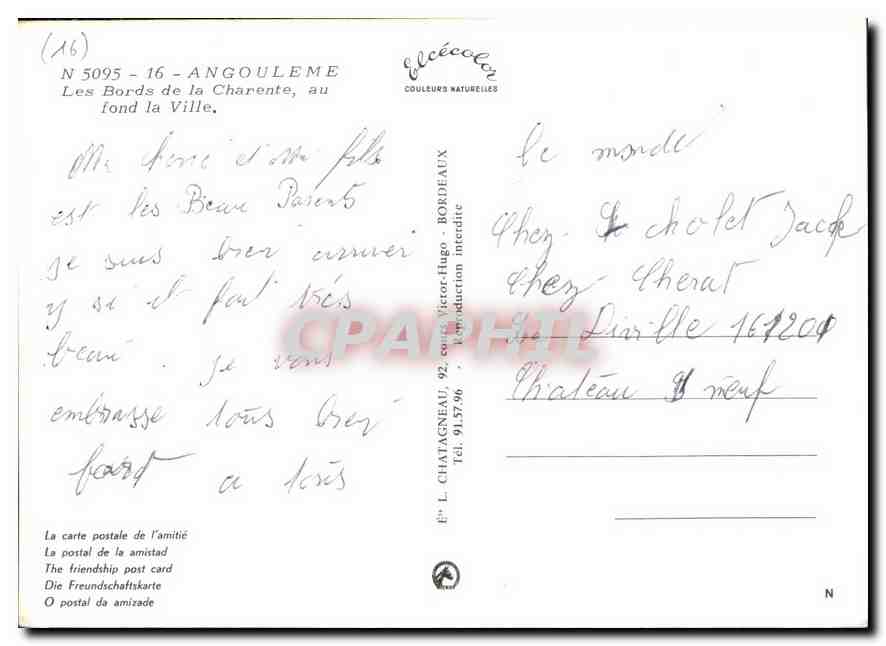 (16)
N 5095 - 16 - ANGOULEME
Les Bords de la Charente, au
fond la Ville.
Elcécolor
COULEURS NATURELLES
Ma et mon fils
est les Beau Parents
je suis bien arriver
y si il fait très
beau. je vous
embrasse tous bien
fort a tous
La carte postale de l'amitié
La postal de la amistad
The friendship post card
Die Freundschaftskarte
O postal da amizade
Éts L. CHATAGNEAU, 92, cours Victor-Hugo - BORDEAUX
Tél. 91.57.96 - Reproduction interdite
CPAPHIL
le monde
Chez cholet Jacque
Chez Cherat
Le Diville 161200
Chateau neuf
N